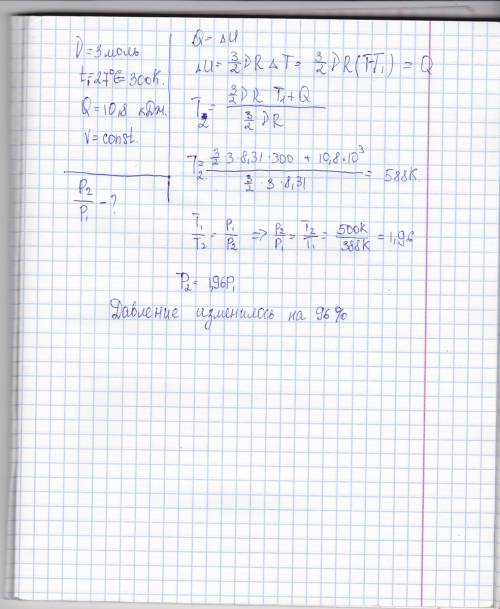 ν = 3 моль
t₁ = 27°C = 300K.
Q = 10,8 кДж.
V = const.
P₂/P₁ - ?
Q = ΔU
ΔU = 3/2 νRΔT = 3/2 νR(T-T₁) = Q
T₂ = (3/2 νR T₁ + Q) / (3/2 νR)
T₂ = (3/2 · 3 · 8,31 · 300 + 10,8 · 10³) / (3/2 · 3 · 8,31) = 588K.
T₁/T₂ = P₁/P₂ => P₂/P₁ = T₂/T₁ = 500K/388K = 1,96
P₂ = 1,96P₁
Давление изменилось на 96%